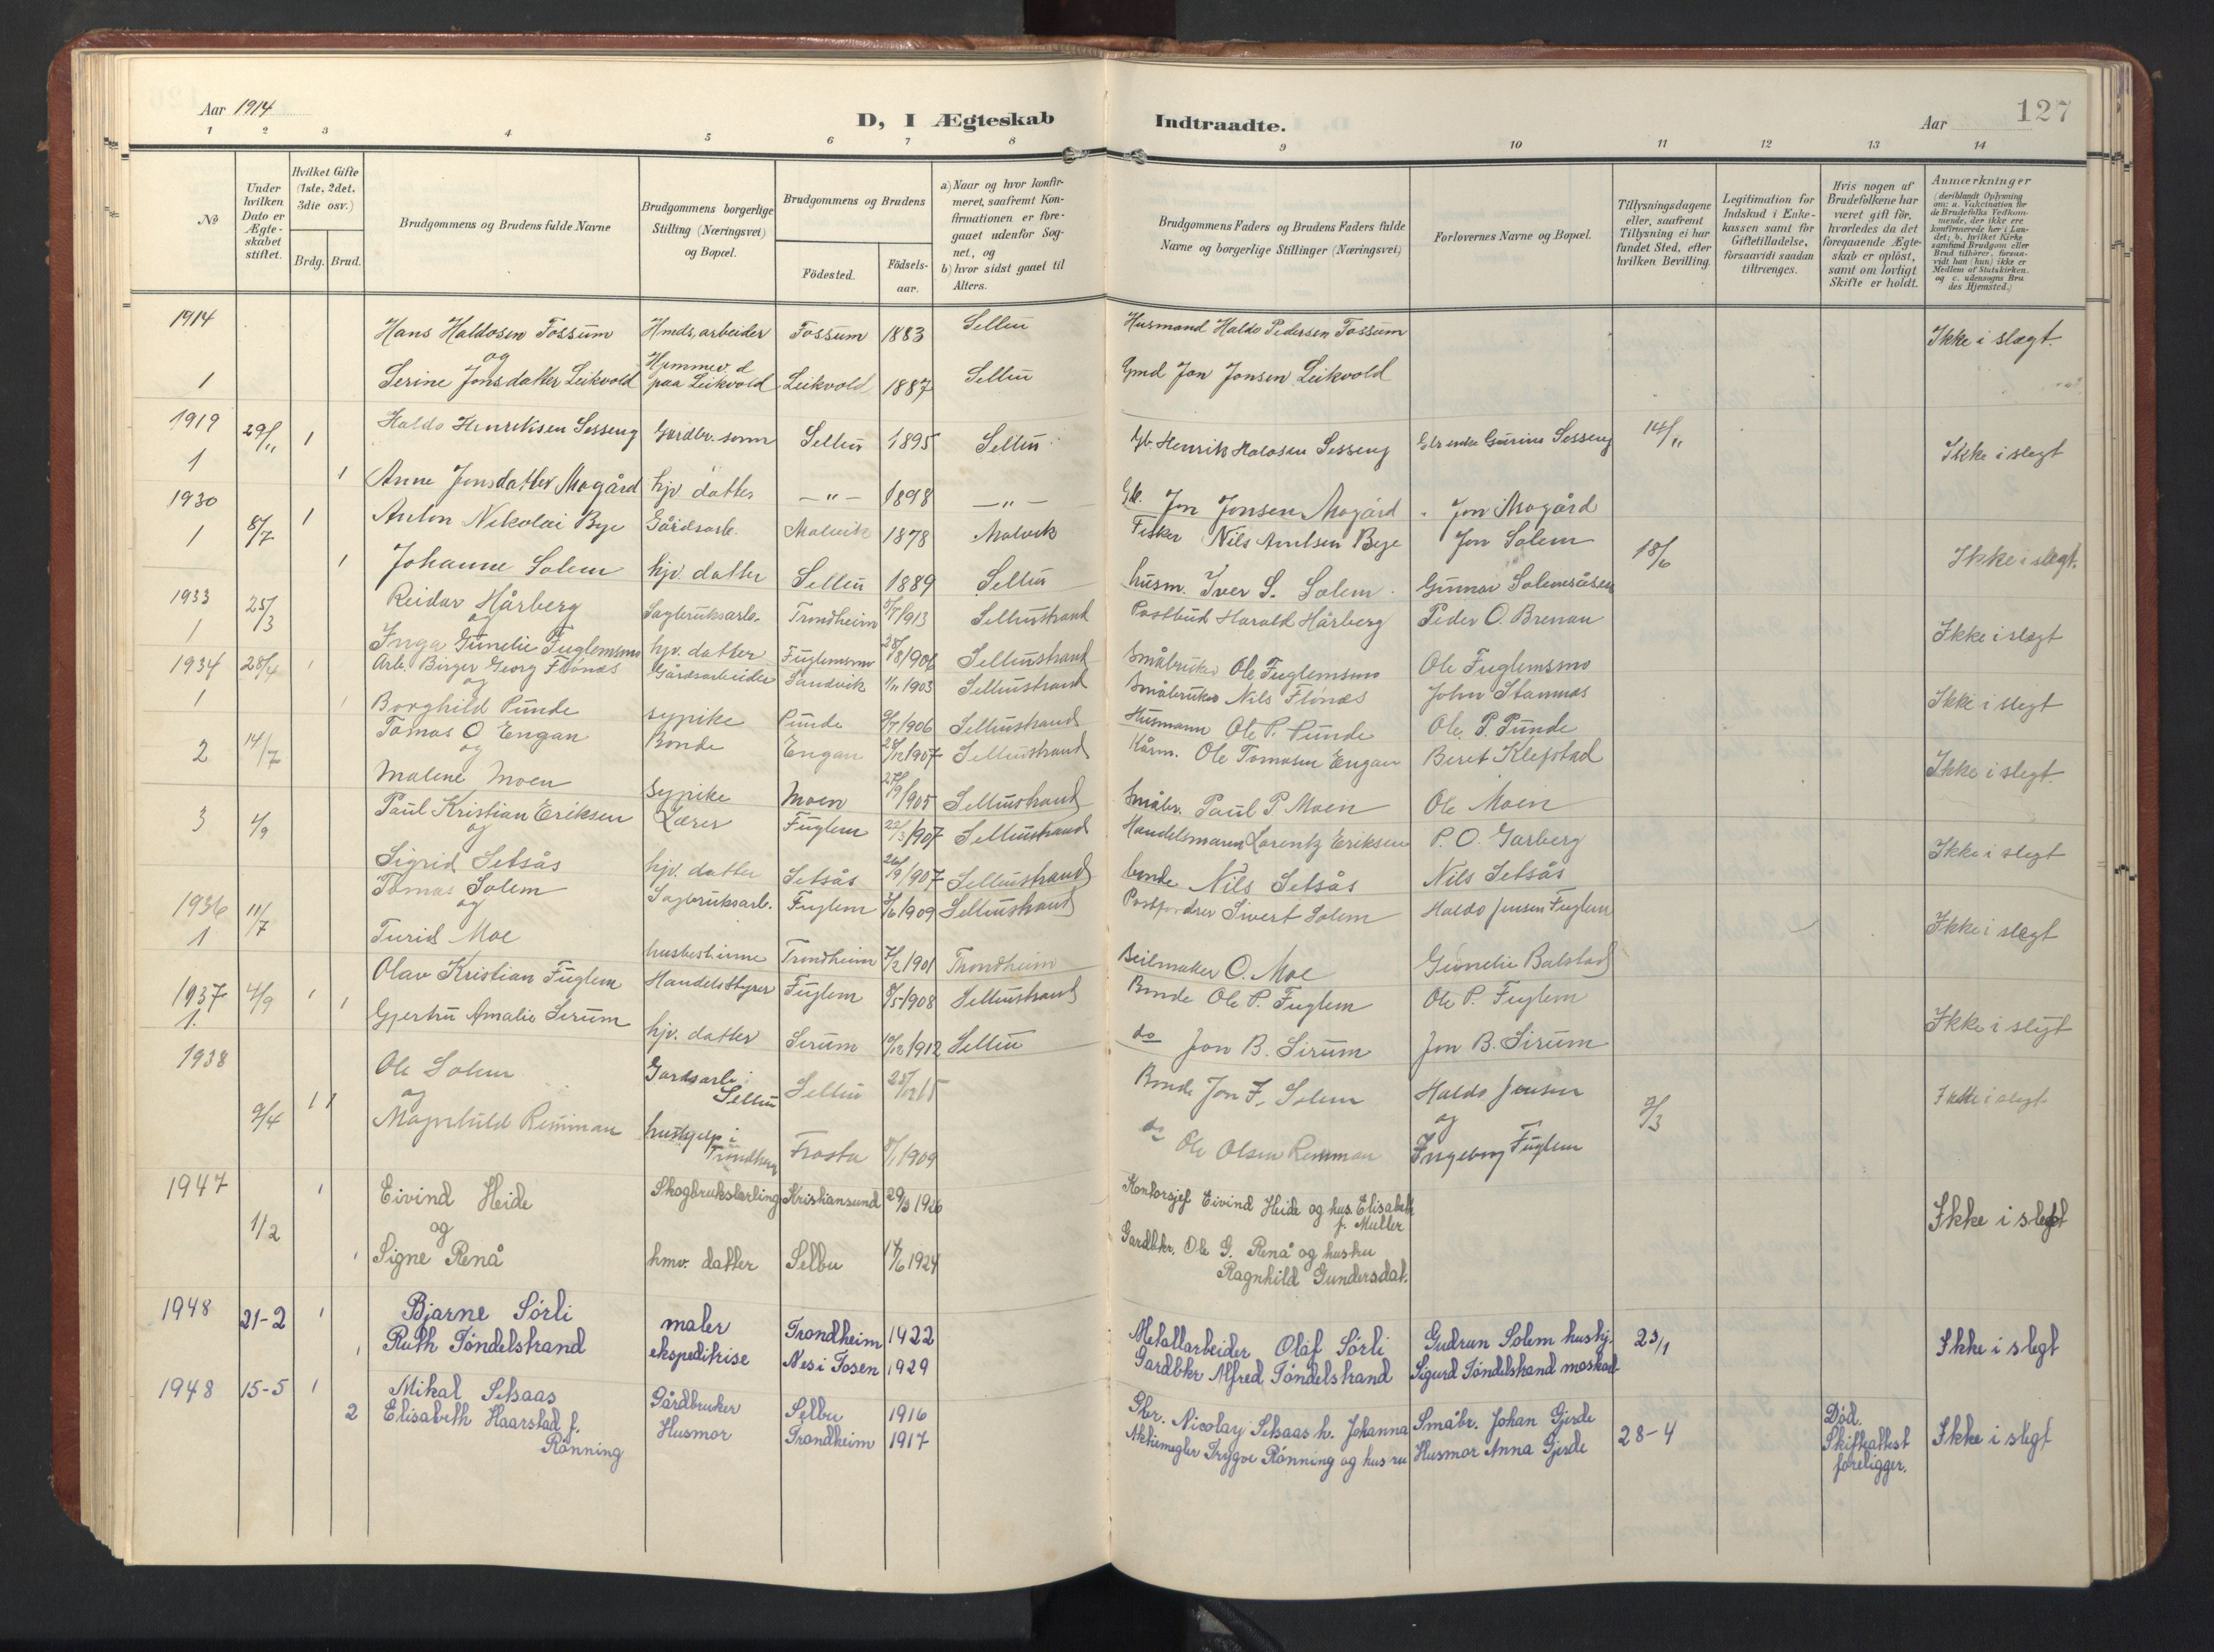 Aar 1914
D, I Ægteskab Indtraadte.
Aar 127
1 2 3 4 5 6 7 8 9 10 11 12 13 14
№
Under hvilken Dato er Ægteskabet stiftet.
Hvilket Gifte (1ste, 2det, 3die osv.)
Brdg. Brud.
Brudgommens og Brudens fulde Navne
Brudgommens borgerlige Stilling (Næringsvei) og Bopæl.
Brudgommens og Brudens
Födested.
Födsels-aar.
a) Naar og hvor konfirmeret, saafremt Konfirmationen er foregaaet udenfor Sognet, og
b) hvor sidst gaaet til Alters.
Brudgommens Faders og Brudens Faders fulde Navne og borgerlige Stillinger (Næringsvei)
Forlovernes Navne og Bopæl.
Tillysningsdagene eller, saafremt Tillysning ei har fundet Sted, efter hvilken Bevilling.
Legitimation for Indskud i Enkekassen samt for Giftetilladelse, forsaavidt saadan tiltrænges.
Hvis nogen af Brudefolkene har været gift för, hvorledes da det foregaaende Ægteskab er oplöst, samt om lovligt Skifte er holdt.
Anmærkninger
(deriblandt Oplysning om: a. Vakcination for de Brudefolks Vedkommende, der ikke ere konfirmerede her i Landet; b. hvilket Kirkesamfund Brudgom eller Brud tilhörer, forsaavidt han (hun) ikke er Medlem af Statskirken. og c. udensogns Brudes Hjemsted.)
1914 Hans Haldosen Fossum Hmds. arbeider Fossum 1883 Selbu Husmand Haldo Pedersen Fossum Ikke i slægt.
og
1 Serine Jonsdatter Leikvold paa Leikvold Leikvold 1887 Selbu Gmd Jon Jonsen Leikvold
1919 29/11 1 Haldo Henriksen Sesseng Gardbr. sønn Selbu 1895 Selbu Gb. Henrik Haldosen Sesseng Gbr enke Gurine Sesseng 14/11 Ikke i slegt
1 1 Anne Jonsdatter Mogård hjv datter —"— 1898 —"— Gb. Jon Jonsen Mogård Jon Mogård
1930
1 8/7 1 Anton Nikolai Bye Gårdsarb. Malvik 1878 Malvik Fisker Nils Bye Jon Solem 18/6 Ikke i slegt.
1 Johanne Solem hjv. datter Selbu 1889 Selbu husm. Iver S. Solem Gunnar Solemsåsen
1933 25/3 Reidar Hårberg Sagbruksarb. Trondheim 1913 Selbustrand Postbud Harald Hårberg Peder O. Brenan Ikke i slegt
1 og
Inga Gunelie Fuglemsmo hjv. datter Fuglemsmo 28/8 1906 Selbustrand Småbruker Ole Fuglemsmo Ole Fuglemsmo
1934 28/4 1 Arb. Birger Georg Flønes Gårdsarbeider Sandvik 1/11 1903 Selbustrand Småbruker Nils Flønes John Stamnes Ikke i slegt
1 og
1 Borghild Punde sypike Punde 1906 Selbustrand Husmann Ole P. Punde Ole P. Punde
2 14/7 Tomas O Engan Bonde Engan 28/12 1907 Selbustrand Kårm. Ole Tomasen Engan Beret Klefstad Ikke i slegt.
og
Malene Moen sypike Moen 27/9 1905 Selbustrand Småbr. Paul P Moen Ole Moen
3 4/9 Paul Kristian Eriksen Lærer Fuglem 22/3 1907 Selbustrand Handelsmann Lorentz Eriksen P. O. Garberg Ikke i slegt
og
Sigrid Setsås hjv. datter Setsås 26/9 1907 Selbustrand bonde Nils Setsås Nils Setsås
1936 11/7 Tomas Solem Sagbruksarb. Fuglem 1909 Selbustrand Sivert Solem Haldo Jensen Fuglem Ikke i slegt
1 og
Turid Moe husbestinne Trondheim 1901 Trondheim Seilmaker O. Moe Gunelie Balstad
1937 4/9 1 Olav Kristian Fuglem Handelsstyrer Fuglem 1908 Selbustrand Bonde Ole P. Fuglem Ole P. Fuglem
1. 1 Gjertru Amalie Sirum hjv. datter Sirum 1912 Selbu do Jon B. Sirum Jon B. Sirum Ikke i slegt
1938 1 Ole Solem Gardsarb. i Selbu Selbu Bonde Jon F. Solem Haldo Jensen Ikke i slegt
9/4 1 og og 9/3
Magnhild Remman hushjelp i Trondheim Frosta 1909 do Ole Olsen Remman Ingeborg Fuglem
1947 1 Eivind Heide Skogbrukslærling Kristiansund 29/3 1920 Kontorsjef Eivind Heide og hus. Elisabeth f. Muller Ikke i slegt
1/2 og
1 Signe Renå hmv. datter Selbu 1924 Gardbkr. Ole G. Renå og hustru
Ragnhild Gundersdat.
1948 21-2 1 Bjarne Sörli maler Trondheim 1922 Metallarbeider Olaf Sörli Gudrun Solem hushj. 23/1 Ikke i slegt
1 Ruth Töndelstrand ekspeditrise Nes i Fosen 1929 Gardbkr Alfred Töndelstrand Sigurd Töndelstrand
1948 15-5 1 Mikal Setsaas Gårdbruker Selbu 1916 Gbr. Nicolay Setsaas h. Johanna Småbr. Johan Gjerde 28-4 Död. Ikke i slegt
2 Elisabeth Haarstad f. Rönning Husmor Trondheim 1917 Aktiemegler Trygve Rönning og hustru Husmor Anna Gjerde Skifteattest
foreligger.